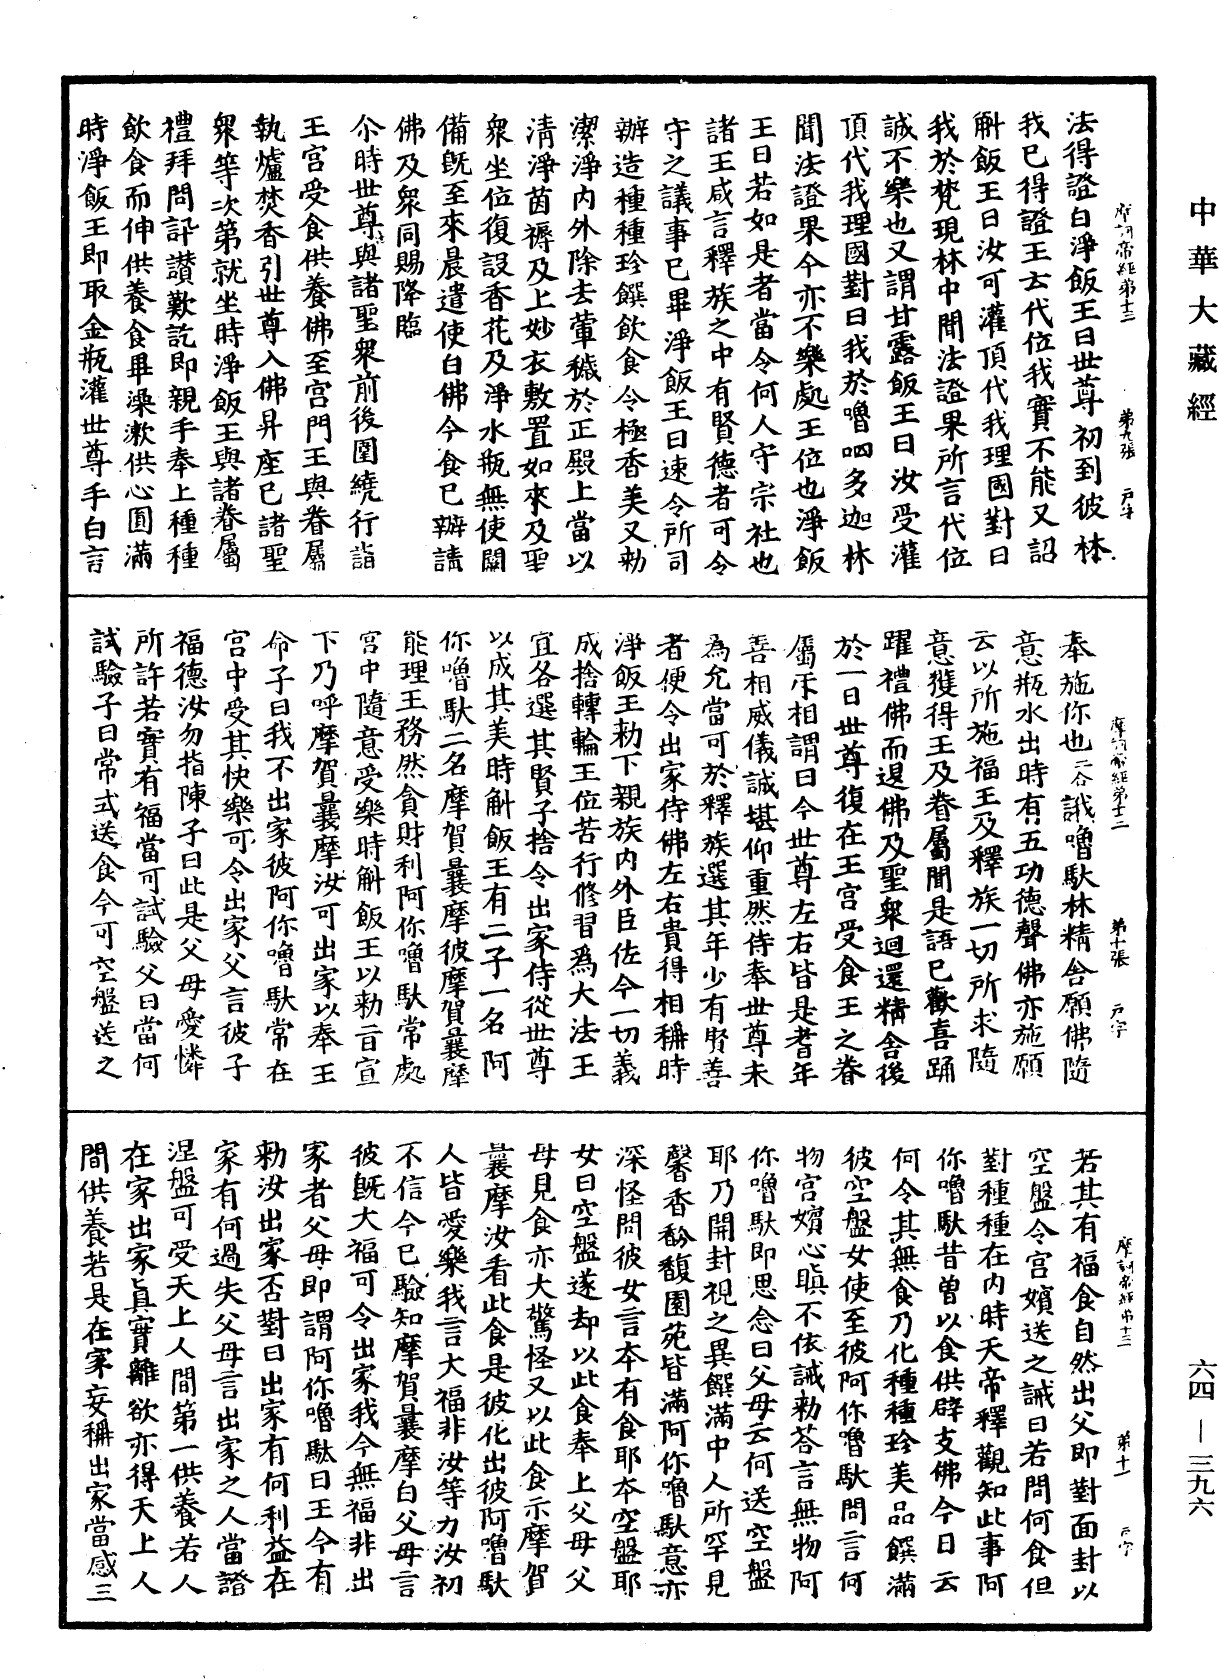 中華大藏經
摩訶帝經第十三 第九張 戶字
法得證白淨飯王曰世尊初到彼林
我已得證王云代位我實不能又詔
斛飯王曰汝可灌頂代我理國對曰
我於梵現林中聞法證果所言代位
誠不樂也又謂甘露飯王曰汝受灌
頂代我理國對曰我於嚕呬多迦林
聞法證果今亦不樂處王位也淨飯
王曰若如是者當令何人守宗社也
諸王咸言釋族之中有賢德者可令
守之議事已畢淨飯王曰速令所司
辦造種種珍饌飲食令極香美又勅
潔淨內外除去葷穢於正殿上當以
清淨茵褥及上妙衣敷置如來及聖
衆坐位復設香花及淨水瓶無使闕
備旣至來晨遣使白佛今食已辦請
佛及衆同賜降臨
尒時世尊與諸聖衆前後圍繞行詣
王宮受食供養佛至宮門王與眷屬
執爐焚香引世尊入佛昇座已諸聖
衆等次第就坐時淨飯王與諸眷屬
禮拜問訊讚歎訖即親手奉上種種
飲食而伸供養食畢澡漱供心圓滿
時淨飯王即取金瓶灌世尊手白言
摩訶帝經第十三 第十張 戶字
奉施你也二合誐嚕馱林精舍願佛隨
意瓶水出時有五功德聲佛亦施願
云以所施福王及釋族一切所求隨
意獲得王及眷屬聞是語已歡喜踊
躍禮佛而退佛及聖衆迴還精舍後
於一日世尊復在王宮受食王之眷
屬㸦相謂曰今世尊左右皆是耆年
善相威儀誠堪仰重然侍奉世尊未
為允當可於釋族選其年少有賢善
者便令出家侍佛左右貴得相稱時
淨飯王勅下親族內外臣佐今一切義
成捨轉輪王位苦行修習爲大法王
宜各選其賢子捨令出家侍從世尊
以成其美時斛飯王有二子一名阿
你嚕馱二名摩賀曩摩彼摩賀曩摩
能理王務然貪財利阿你嚕馱常處
宮中隨意受樂時斛飯王以勅旨宣
下乃呼摩賀曩摩汝可出家以奉王
命子曰我不出家彼阿你嚕馱常在
宮中受其快樂可令出家父言彼子
福德汝勿指陳子曰此是父母愛憐
所許若實有福當可試驗父曰當何
試驗子曰常式送食今可空盤送之
摩訶帝經第十三 第十一 戶字
若其有福食自然出父即對面封以
空盤令宮嬪送之誡曰若問何食但
對種種在內時天帝釋觀知此事阿
你嚕馱昔曾以食供辟支佛今日云
何令其無食乃化種種珍美品饌滿
彼空盤女使至彼阿你嚕馱問言何
物宮嬪心瞋不依誡勅荅言無物阿
你嚕馱即思念曰父母云何送空盤
耶乃開封視之異饌滿中人所罕見
馨香馚馥園苑皆滿阿你嚕馱意亦
深怪問彼女言夲有食耶夲空盤耶
女曰空盤遂却以此食奉上父母父
母見食亦大驚怪又以此食示摩賀
曩摩汝看此食是彼化出彼阿嚕馱
人皆愛樂我言大福非汝等力汝初
不信今已驗知摩賀曩摩白父母言
彼旣大福可令出家我今無福非出
家者父母即謂阿你嚕馱曰王今有
勅汝出家否對曰出家有何利益在
家有何過失父母言出家之人當證
涅盤可受天上人間第一供養若人
在家出家眞實離欲亦得天上人
間供養若是在家妄稱出家當感三
六四—三九六